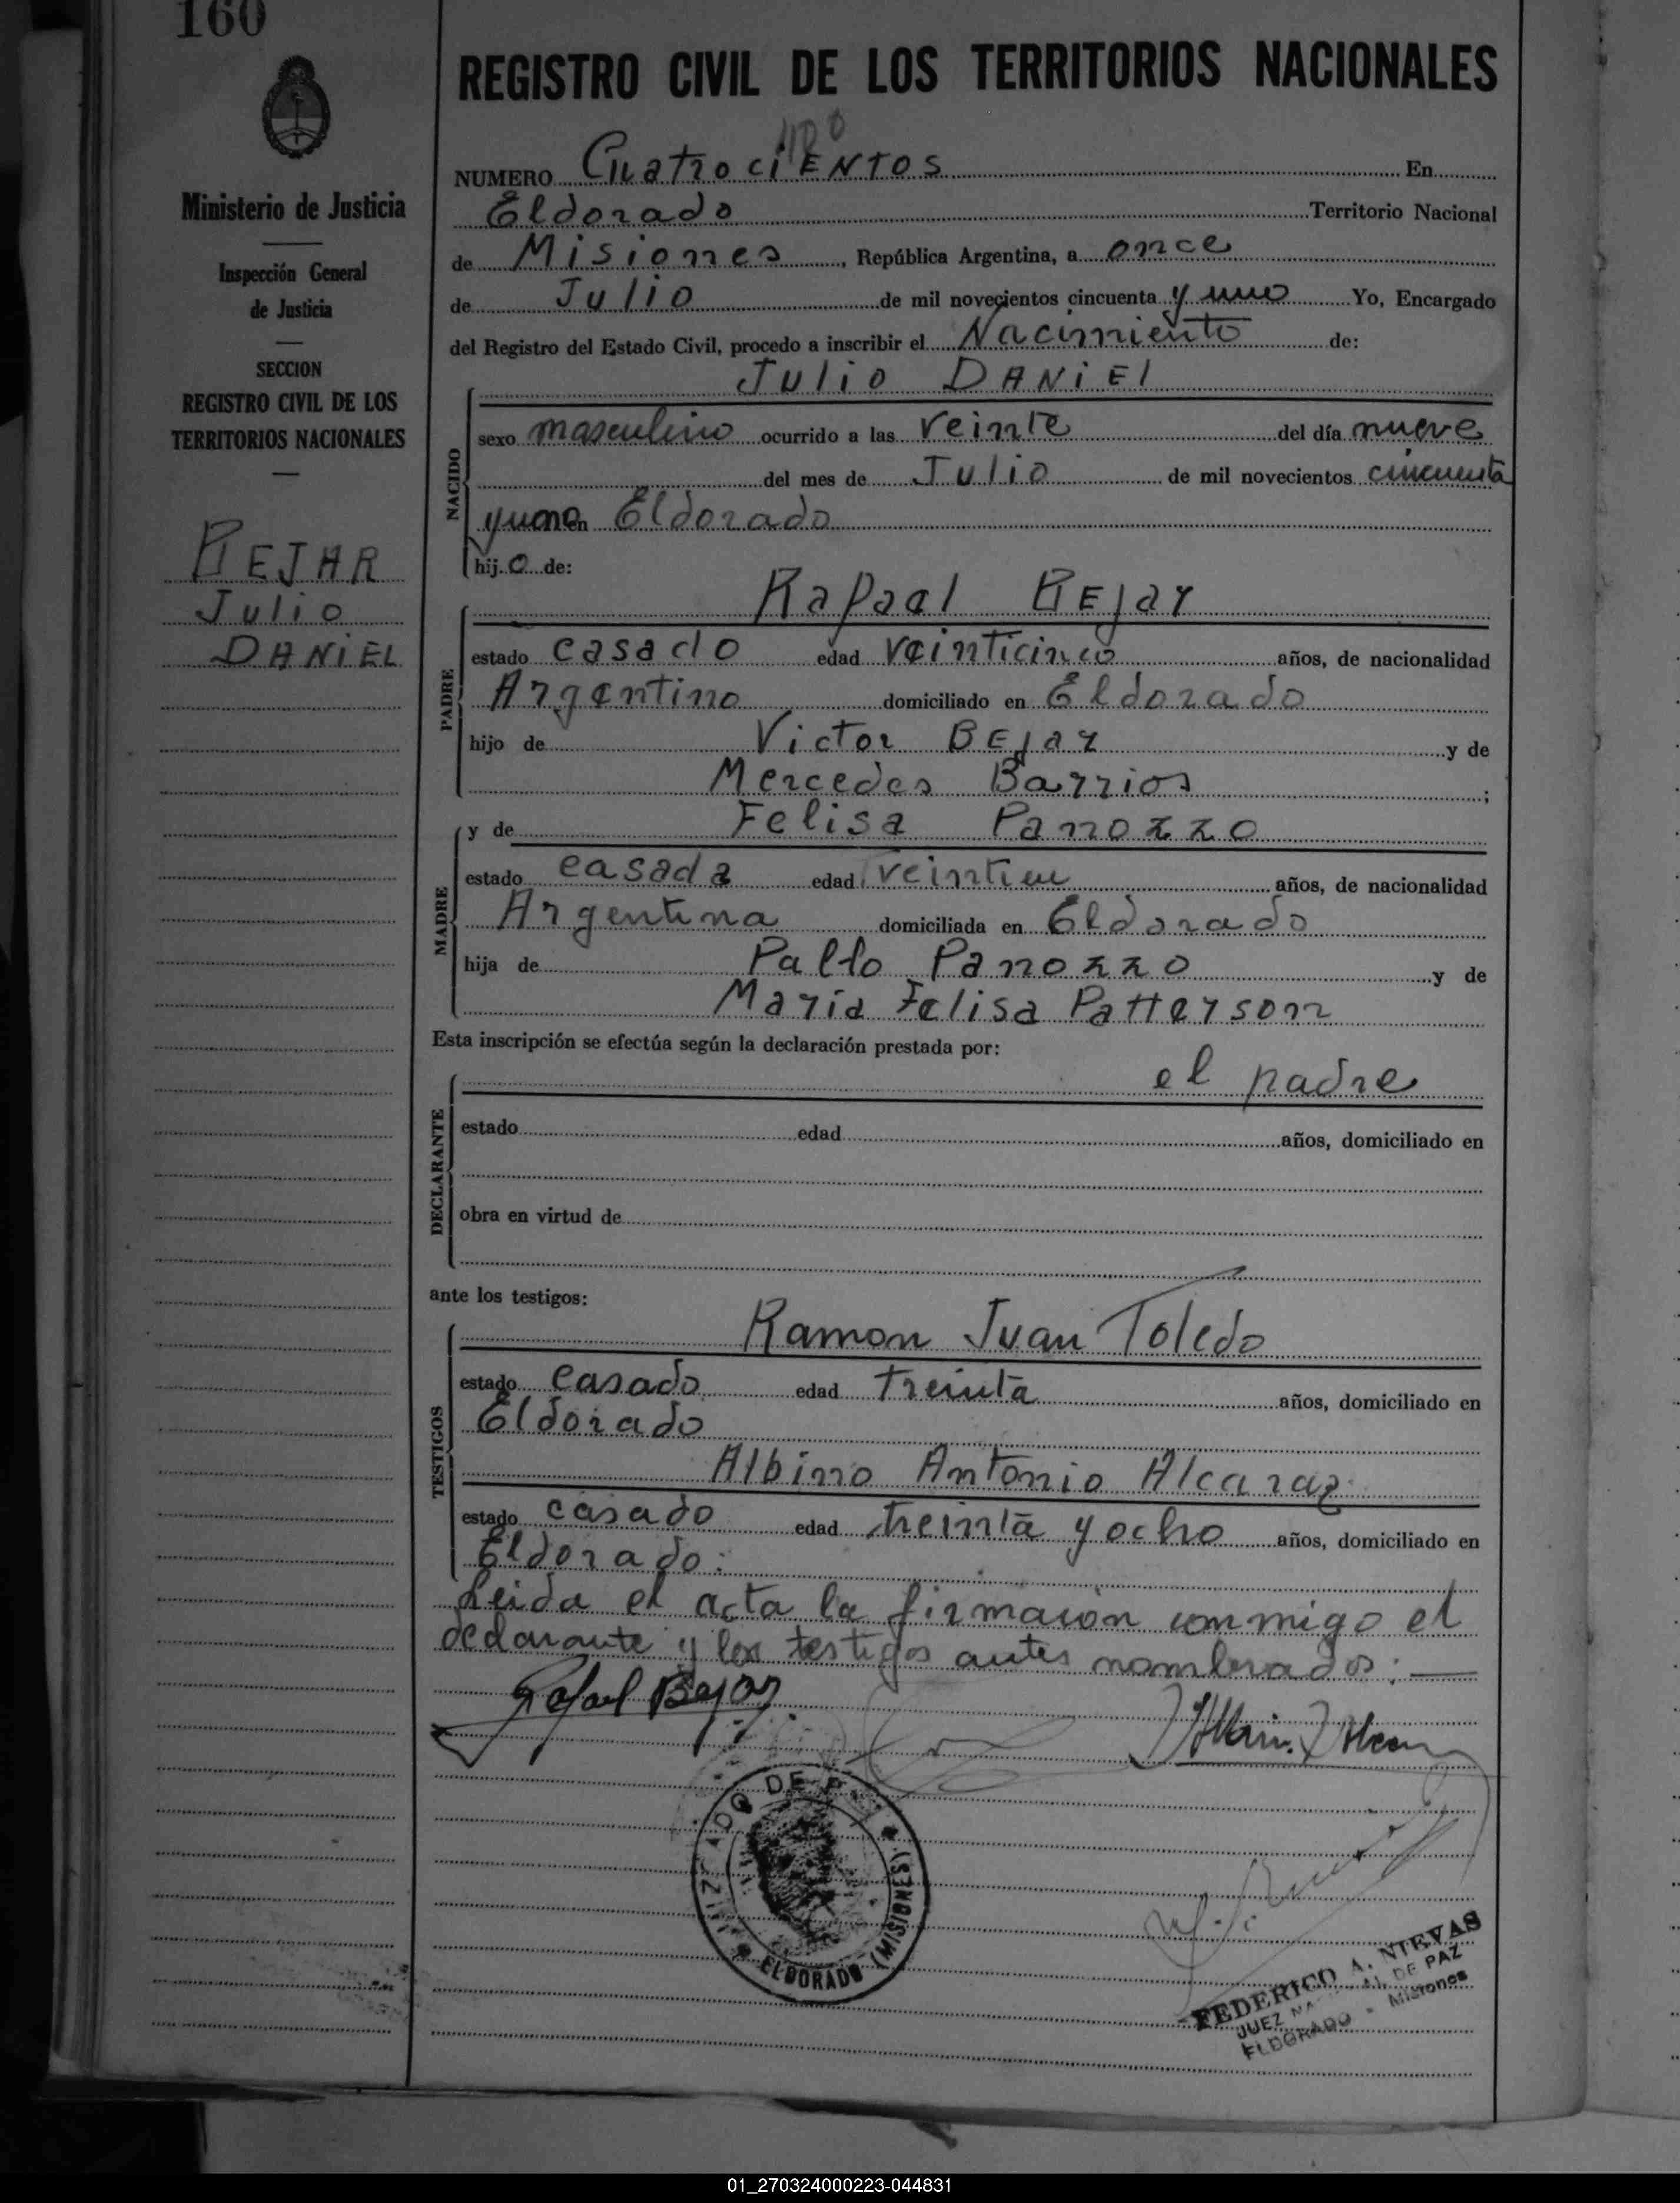 160
Ministerio de Justicia
Inspección General
de Justicia
SECCION
REGISTRO CIVIL DE LOS
TERRITORIOS NACIONALES
BEJAR
Julio
DANiEL
REGISTRO CIVIL DE LOS TERRITORIOS NACIONALES
400
NUMERO Cuatrocientos En
Eldorado Territorio Nacional
de Misiones, República Argentina, a once
de Julio de mil novecientos cincuenta y uno Yo, Encargado
del Registro del Estado Civil, procedo a inscribir el Nacimiento de:
Julio DANiEl
NACIDO
sexo masculino ocurrido a las veinte del día nueve
del mes de Julio de mil novecientos cincuenta
y uno en Eldorado
hijo de:
Rafael BEjar
PADRE
estado casado edad veinticinco años, de nacionalidad
Argentino domiciliado en Eldorado
hijo de Victor BEjar y de
Mercedes Barrios;
y de Felisa Panozzo
MADRE
estado casada edad veintiun años, de nacionalidad
Argentina domiciliada en Eldorado
hija de Pablo Panozzo y de
Maria Felisa Patterson
Esta inscripción se efectúa según la declaración prestada por:
el padre
DECLARANTE
estado edad años, domiciliado en
obra en virtud de
ante los testigos:
Ramon Juan Toledo
TESTIGOS
estado casado edad treinta años, domiciliado en
Eldorado
Albino Antonio Alcaraz
estado casado edad treinta y ocho años, domiciliado en
Eldorado.
Leida el acta la firmaron conmigo el
declarante y los testigos antes nombrados:
Rafael Bejar
JUZGADO DE PAZ
ELDORADO (MISIONES)
FEDERICO A. NIEVAS
JUEZ DE PAZ
ELDORADO - Misiones
01_270324000223-044831